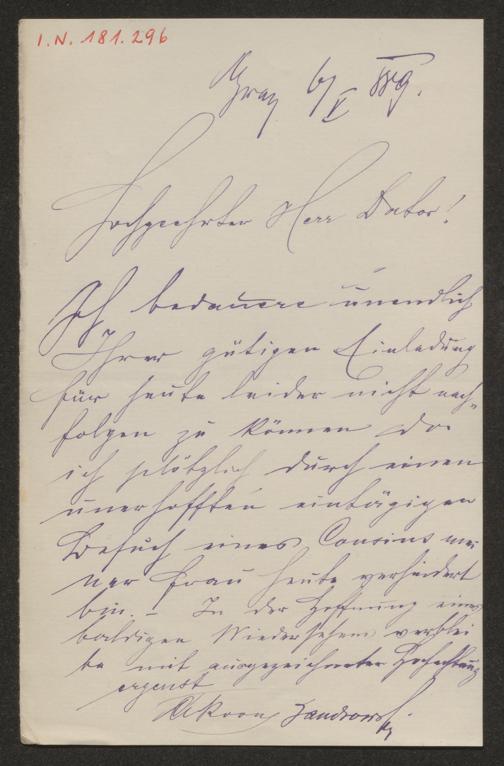 I.N. 181.296
Graz 6/V 889.
Hochgeehrter Herr Doktor!
Ich bedauere unendlich
Ihrer gütigen Einladung
für heute leider nicht nach-
folgen zu können da
ich plötzlich durch einen
unverhofften eintägigen
Besuch eines Cousins mei
ner Frau heute verhindert
bin. – In der Hoffnung eines
baldigen Wiedersehens verblei
be mit ausgezeichneter Hochachtung
ergenst